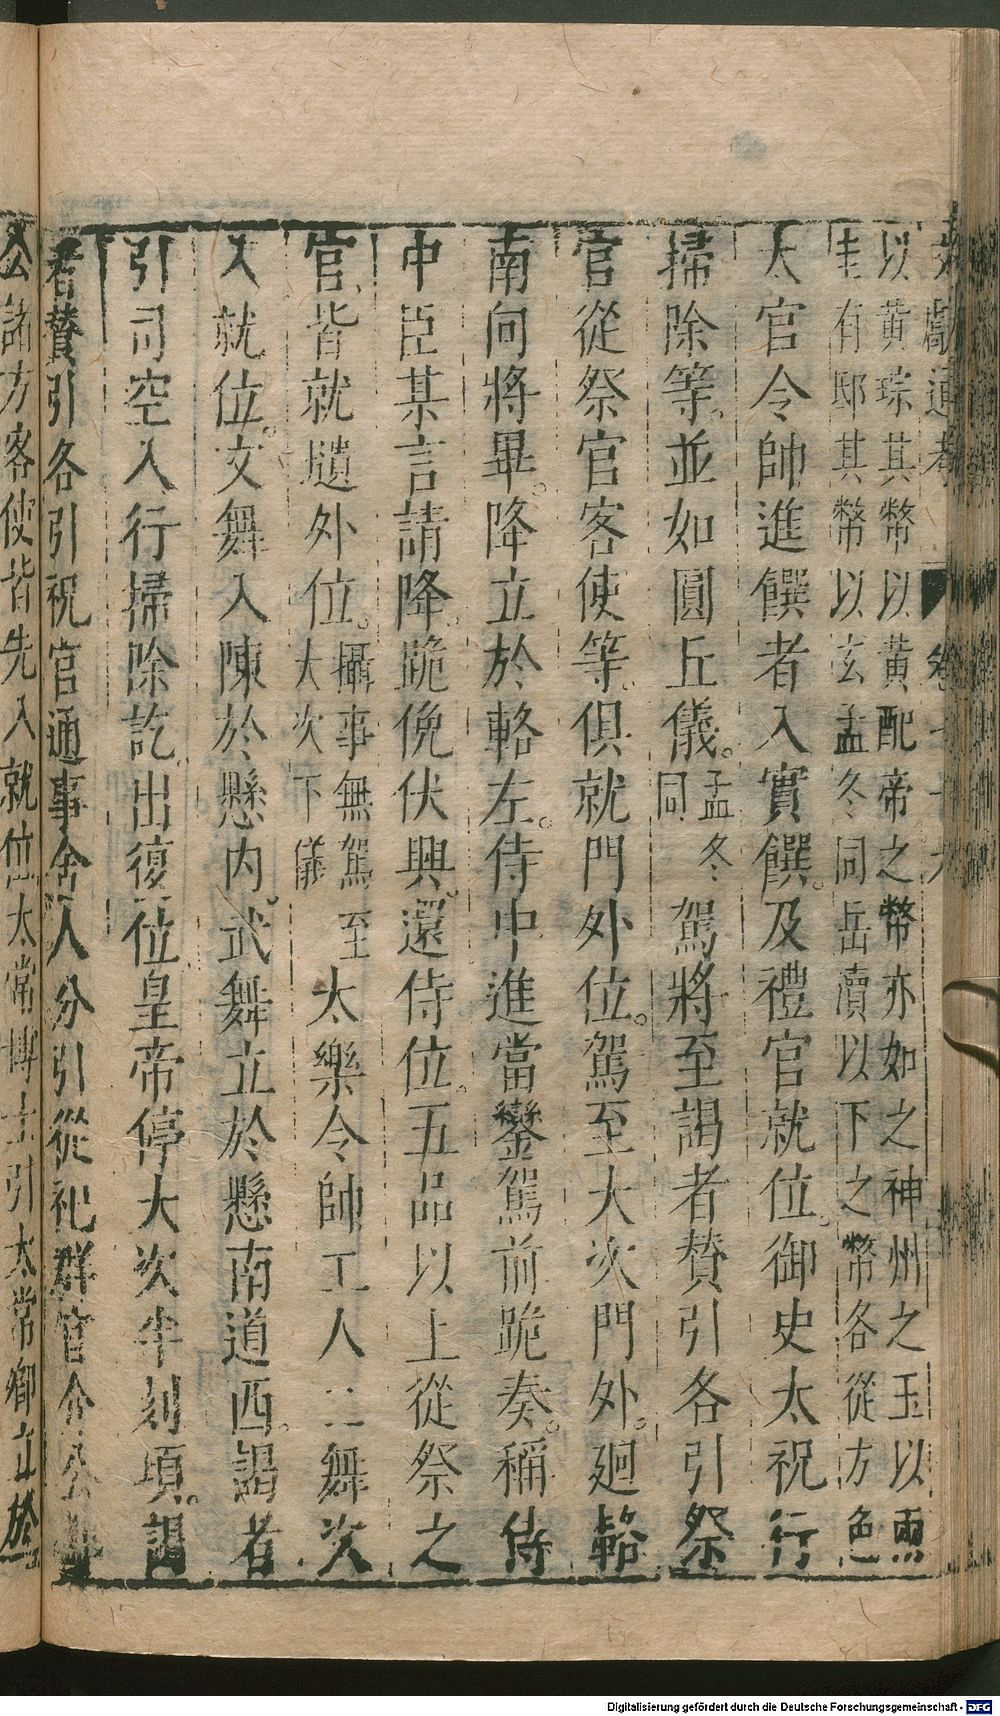 文獻通考 卷七十六
以黃琮其幣以黃配帝之幣亦如之神州之玉以兩
圭有邸其幣以玄孟冬同岳瀆以下之幣各從方色
太官令帥進饌者入實饌。及禮官就位。御史太祝行
掃除等。並如圓丘儀。孟冬同駕將至謁者贊引各引祭
官從祭官客使等。俱就門外位。駕至大次門外。廻輅
南向將畢。降立於輅左。侍中進當鑾駕前跪奏。稱侍
中臣某言請降。跪俛伏興。還侍位。五品以上從祭之
官皆就壝外位。攝事無駕至大次下儀太樂令帥工人二舞次
入就位。文舞入陳於懸內。武舞立於懸南道西。謁者
引司空入行掃除訖。出復位皇帝停大次半刻頃。謁
者贊引各引祝官通事舍人分引從祀群官介公
公諸方客使皆先入就位太常博士引太常卿立於
Digitalisierung gefördert durch die Deutsche Forschungsgemeinschaft - DFG